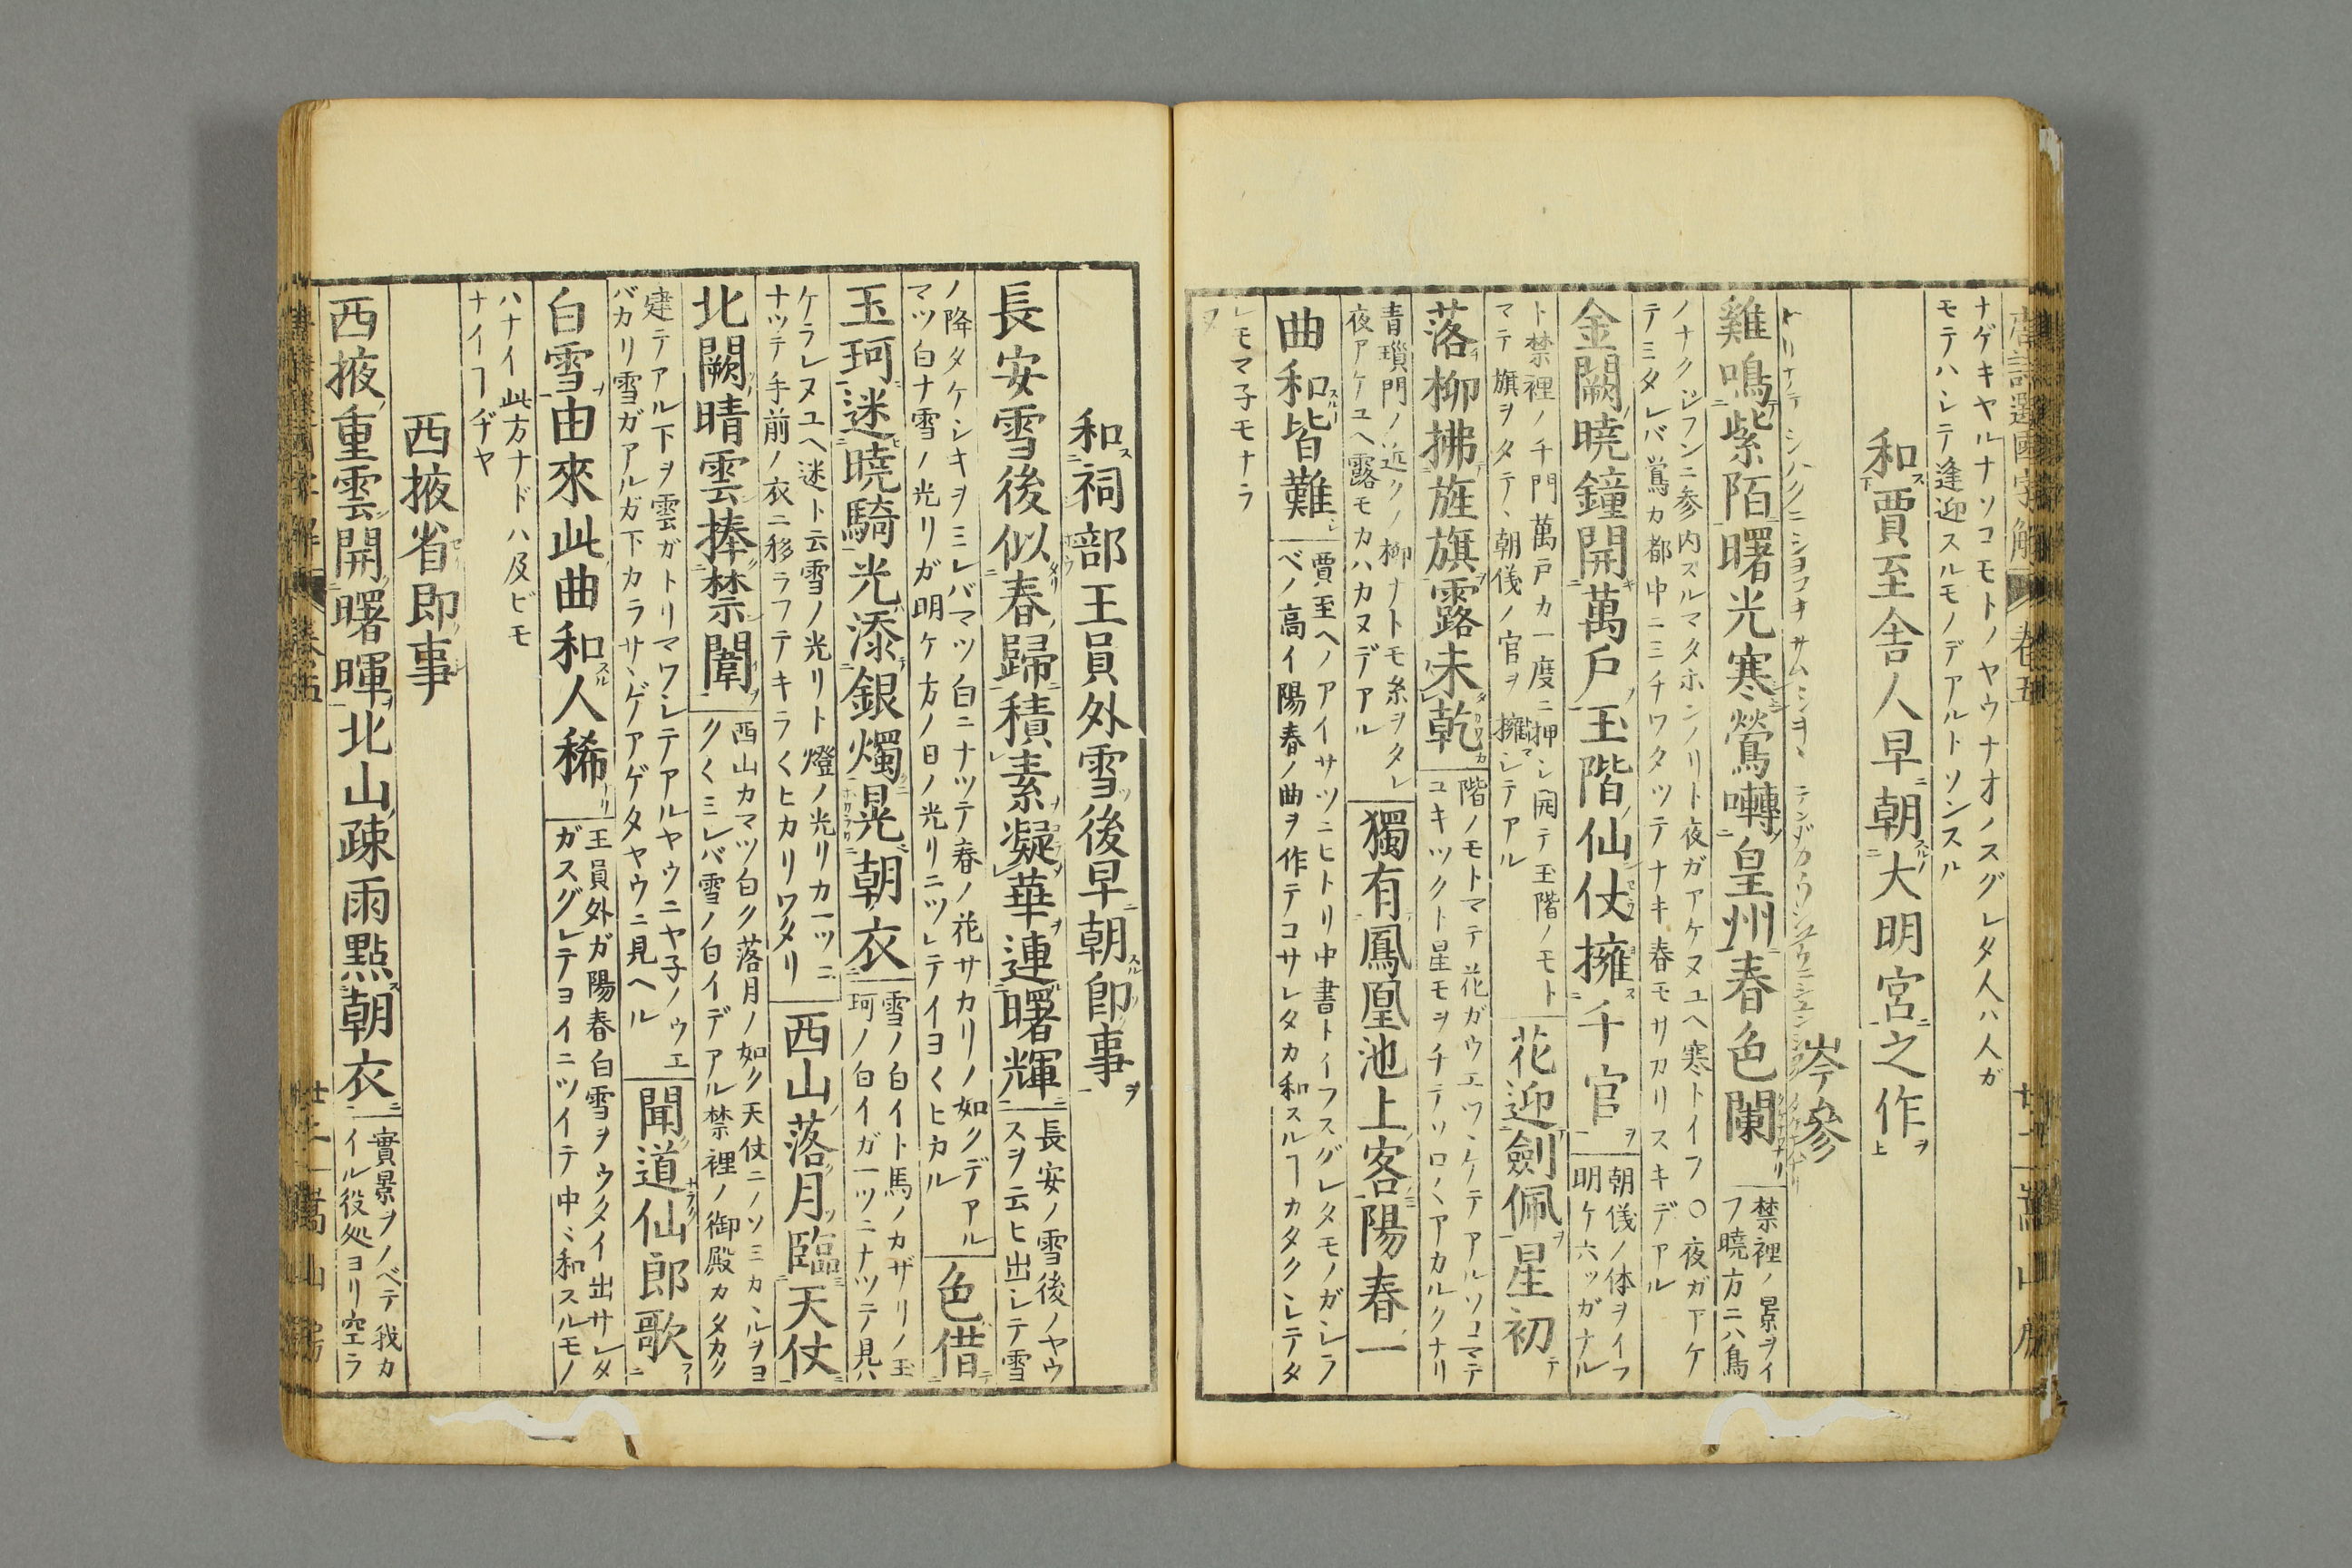 唐詩選國字解 卷五 廿一 嵩山房
ナゲキヤルナソコモトノヤウナオノスグレタ人ハ人ガ
モテハシテ逢迎スルモノデアルトソンスル
和賈至舍人早朝大明宮之作
岑參
雞鳴紫陌曙光寒鶯囀皇州春色闌
禁裡ノ景ヲイ
フ曉方ニハ鳥
ノナクジフンニ参内ズルマタホンノリト夜ガアケヌユヘ寒トイフ○夜ガアケ
テミタレバ鶯カ都中ニミチワタツテナキ春モサカリスキデアル
金闕曉鐘開萬戶玉階仙仗擁千官
朝儀ノ体ヲイフ
明ケ六ッガナル
ト禁裡ノ千門萬戸カ一度ニ押シ開テ玉階ノモト
マテ旗ヲタテヽ朝儀ノ官ヲ擁シテアル
花迎劍佩星初
落柳拂旌旗露未乾
階ノモトマテ花ガウエツヽケテアルソコマテ
ユキツクト星モヲチテソロヽアカルクナリ
青瑣門ノ近クノ柳ナトモ糸ヲタレ
夜アケユヘ露モカハカヌデアル
獨有鳳凰池上客陽春一
曲和皆難
賈至ヘノアイサツニヒトリ中書トイフスグレタモノガシラ
ベノ高イ陽春ノ曲ヲ作テコサレタカ和スルヿカタクシテタ
レモマ子モナラ
ヌ
和祠部王員外雪後早朝即事
長安雪後似春歸積素凝華連曙輝
長安ノ雪後ノヤウ
スヲ云ヒ出シテ雪
ノ降タケシキヲミレバマツ白ニナツテ春ノ花サカリノ如クデアル
マツ白ナ雪ノ光リガ明ケ方ノ日ノ光リニツレテイヨくヒカル
色借
玉珂迷曉騎光添銀燭晃朝衣
雪ノ白イト馬ノカザリノ玉
珂ノ白イガ一ツニナツテ見ハ
ケラレヌユヘ迷ト云雪ノ光リト燈ノ光リカ一ツニ
ナツテ手前ノ衣ニ移ラフテキラくヒカリワタリ
西山落月臨天仗
北闕晴雲捧禁闈
西山カマツ白ク落月ノ如ク天仗ニノソミカヽルヲヨ
クくミレバ雪ノ白イデアル禁裡ノ御殿カタカク
建テアル下ヲ雲ガトリマワシテアルヤウニヤ子ノウエ
バカリ雪ガアルガ下カラサヽゲアゲタヤウニ見ヘル
聞道仙郎歌
白雪由來此曲和人稀
王員外ガ陽春白雪ヲウタイ出サレタ
ガスグレテヨイニツイテ中ヽ和スルモノ
ハナイ此方ナドハ及ビモ
ナイヿヂヤ
西掖省即事
西掖重雲開曙暉北山疎雨點朝衣
實景ヲノベテ我カ
イル役処ヨリ空ラ